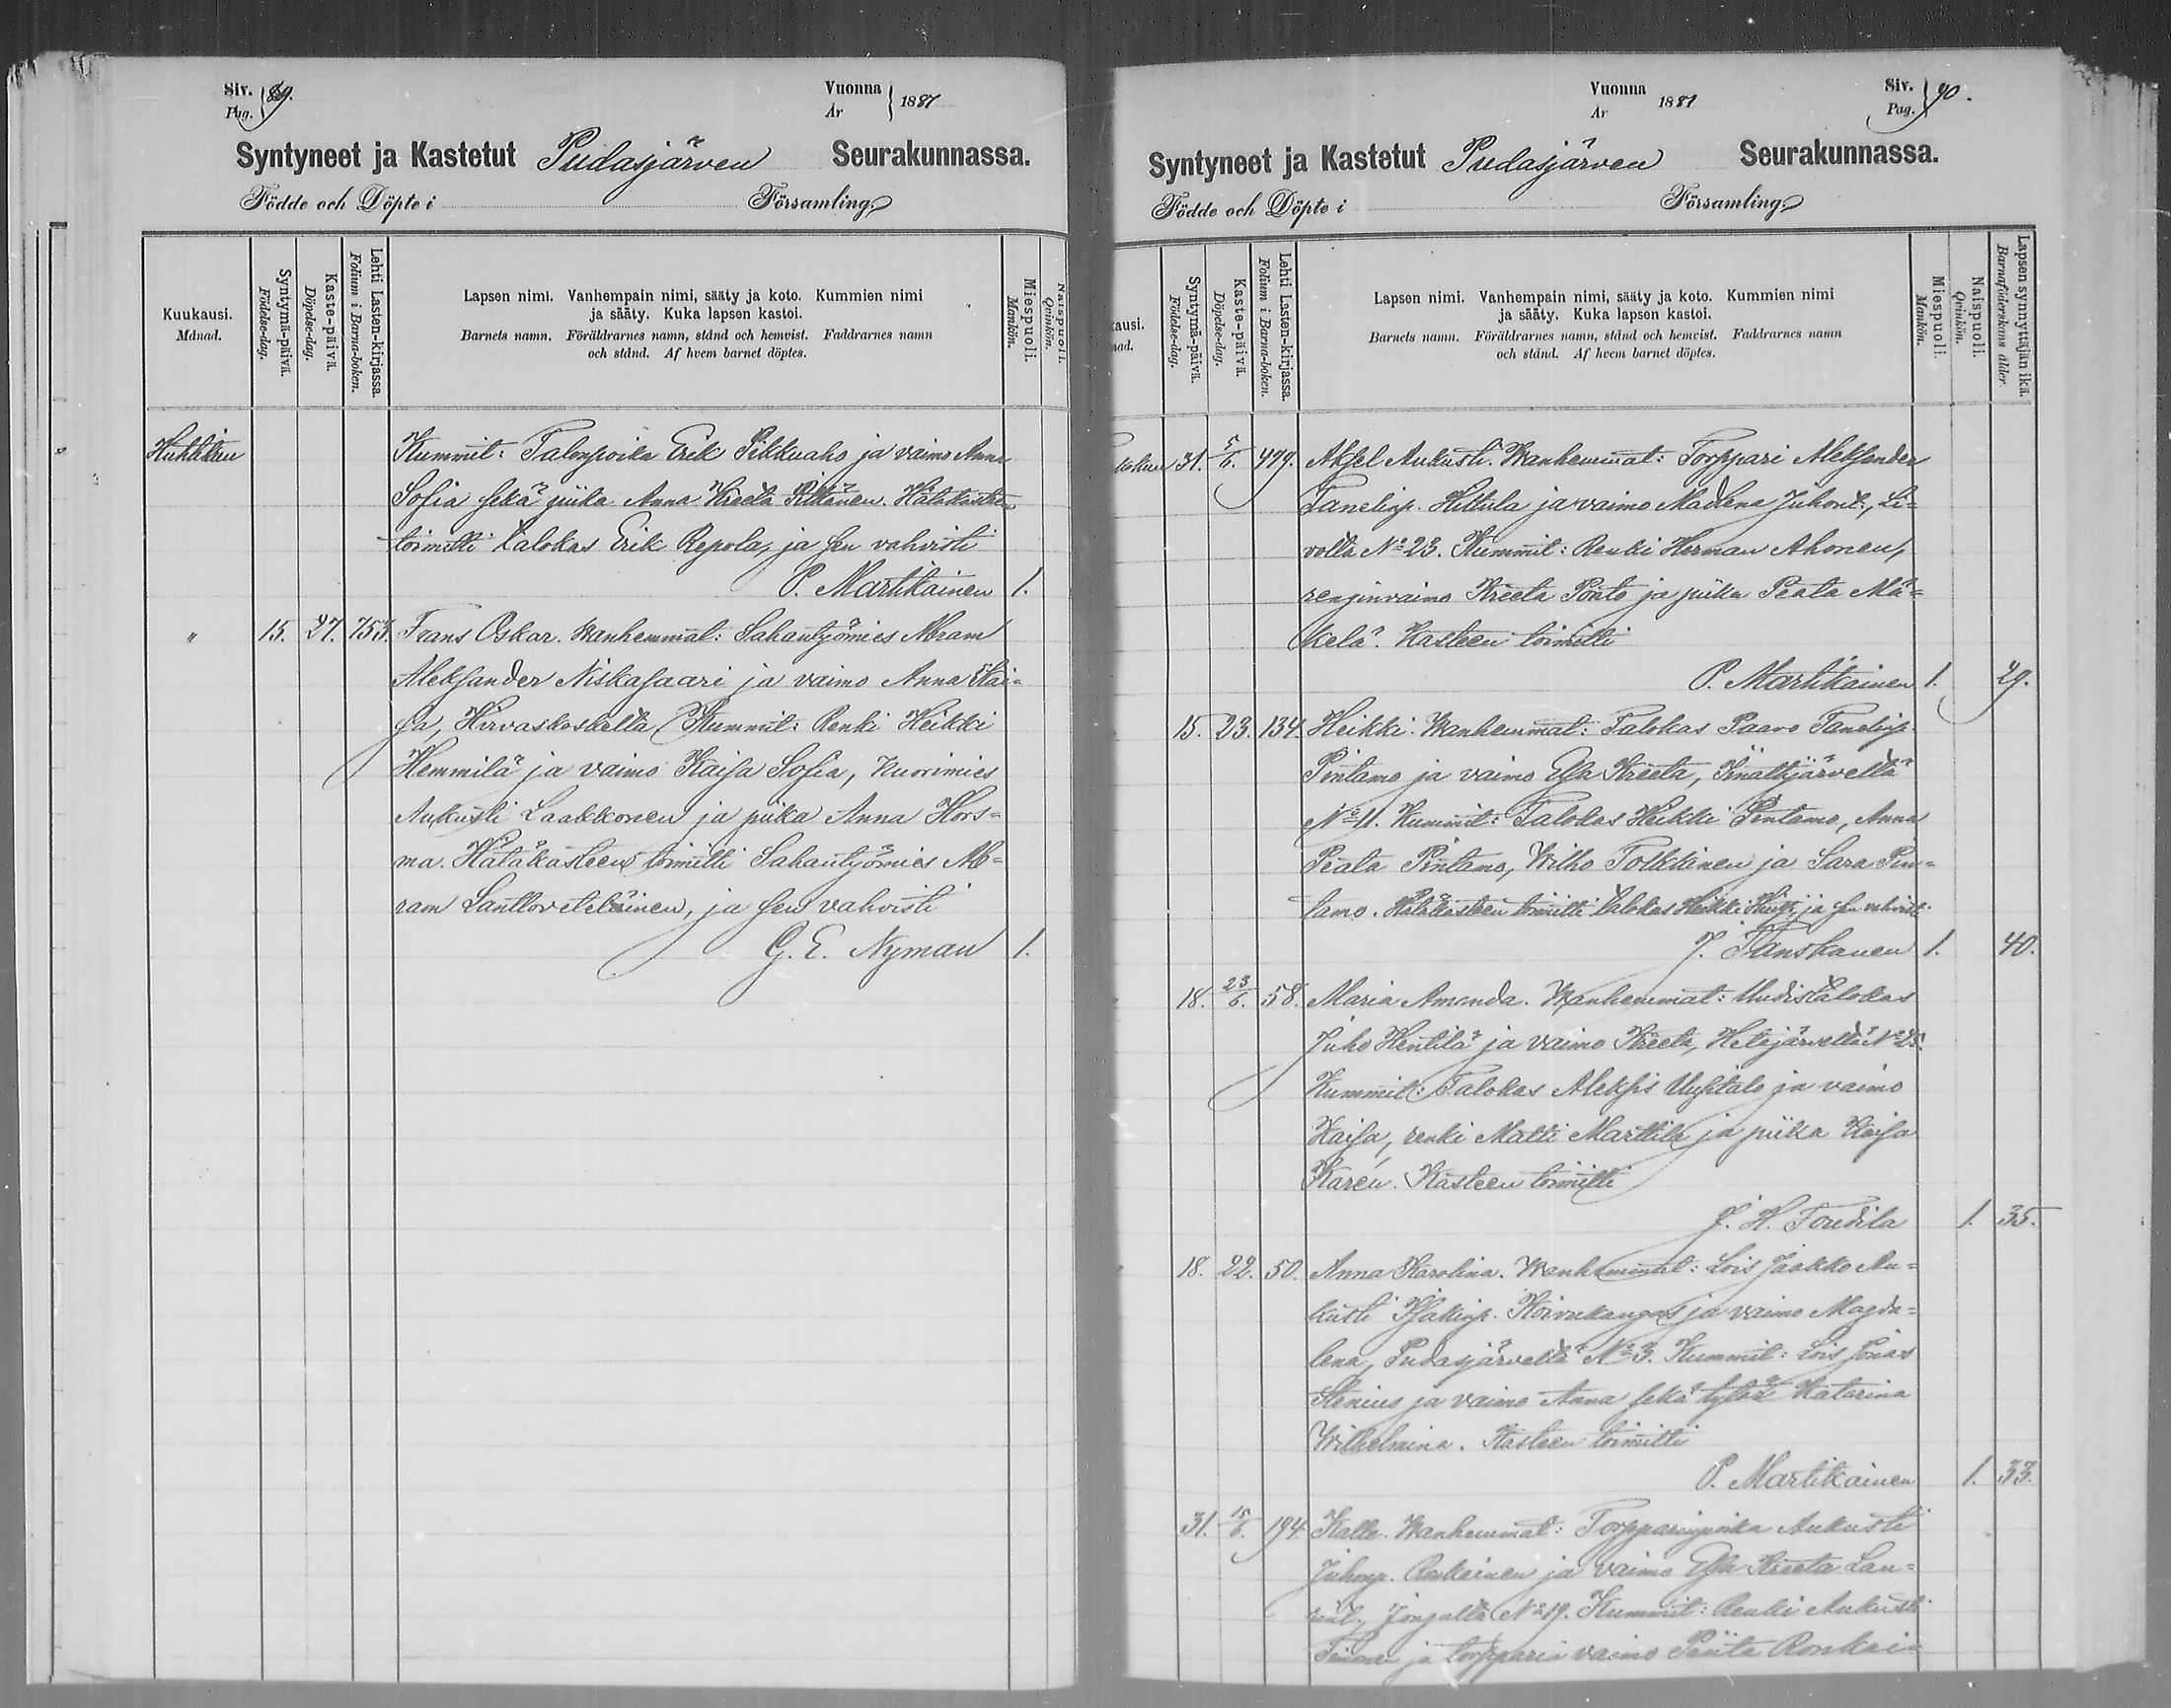 Siv. Pag. 89.
Vuonna År 1887
Syntyneet ja Kastetut Pudasjärven Seurakunnassa.
Födde och Döpte i Församling.
Kuukausi. Månad.
Syntymä-päivä. Födelse-dag.
Kaste-päivä. Döpelse-dag.
Lehti Lasten-kirjassa. Folium i Barna-boken.
Lapsen nimi. Vanhempain nimi, sääty ja koto. Kummien nimi
ja sääty. Kuka lapsen kastoi.
Barnets namn. Föräldrarnes namn, stånd och hemvist. Faddrarnes namn
och stånd. Af hvem barnet döptes.
Miespuoli. Mankön.
Naispuoli. Qvinkön.
Huhtikuu Kummit: Talonpoika Erik Pikkuaho ja vaimo Anna
Sofia sekä piika Anna Kreeta Pitkänen. Hätäkasteen
toimitti talokas Erik Repola, ja sen vahvisti
P. Martikainen 1.
" 15. 27. 753. Frans Oskar. Wanhemmat: Sahantyömies Abram
Aleksander Niskasaari ja vaimo Anna Kai-
sa, Hirvaskoskelta. Kummit: Renki Heikki
Hemmilä ja vaimo Kaisa Sofia, nuorimies
Aukusti Laakkonen ja piika Anna Hors-
ma. Hätäkasteen toimitti Sahantyömies Ab-
ram Lanttoveteläinen, ja sen vahvisti
G. E. Nyman 1.
Vuonna År 1887
Siv. Pag. 90.
Syntyneet ja Kastetut Pudasjärven Seurakunnassa.
Födde och Döpte i Församling.
kausi. nad.
Syntymä-päivä. Födelse-dag.
Kaste-päivä. Döpelse-dag.
Lehti Lasten-kirjassa. Folium i Barna-boken.
Lapsen nimi. Vanhempain nimi, sääty ja koto. Kummien nimi
ja sääty. Kuka lapsen kastoi.
Barnets namn. Föräldrarnes namn, stånd och hemvist. Faddrarnes namn
och stånd. Af hvem barnet döptes.
Miespuoli. Mankön.
Naispuoli. Qvinkön.
Lapsen synnyttäjän ikä. Barnaföderskans ålder.
31. 5/6. 479. Aksel Aukusti. Wanhemmat: Torppari Aleksander
Tanelinp. Hiltula ja vaimo Madlena Juhont., Li-
volta No 23. Kummit: Renki Herman Ahonen,
renginvaimo Kreeta Ponto ja piika Peata Mä-
kelä. Kasteen toimitti
P. Martikainen 1. 29.
15. 23. 134. Heikki. Wanhemmat: Talokas Paavo Tanelinp.
Pintamo ja vaimo Elsa Kreeta, Iinattijärveltä
No 11. Kummit: Talokas Heikki Pintamo, Anna
Peata Pintamo, Wilho Tolkkinen ja Sara Pin-
tamo. Hätäkasteen toimitti talokas Heikki ja sen vahvisti
J. Tanskanen 1. 40.
18. 23/6. 58. Maria Amanda. Wanhemmat: Uudistalokas
Juho Hentilä ja vaimo Kreeta, Hetejärveltä No 25.
Kummit: Talokas Aleksis Uusitalo ja vaimo
Kaisa, renki Matti Marttila ja piika Kaisa
Karén. Kasteen toimitti
J. H. Toudila 1. 35.
18. 22. 50. Anna Karolina. Wanhemmat: Lois Jaakko Au-
kusti Isakinp. Koivukangas ja vaimo Magda-
lena, Pudasjärveltä No 3. Kummit: Lois Jonas
Stenius ja vaimo Anna sekä tytär Katarina
Wilhelmina. Kasteen toimitti
P. Martikainen 1. 33.
31. 15/6. 194. Kalle. Wanhemmat: Torpparinpoika Aukusti
Juhonp. Ronkainen ja vaimo Elsa Kreeta Lau-
rint., Jongulta No 19. Kummit: Renki Aukusti
Timonen ja torpparin vaimo Priita Ronkai-